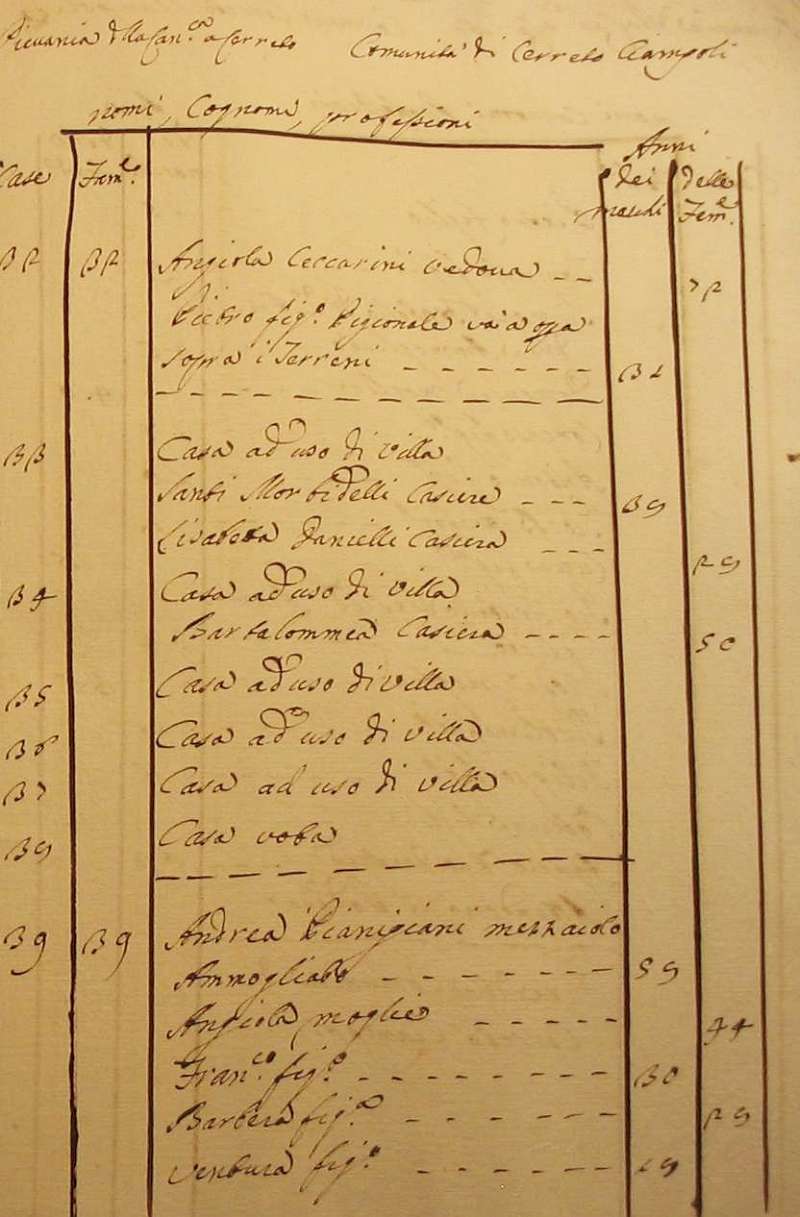 Pievania della Can.ca a Cerreto Comunità di Cerreto Ciampoli
nomi, Cognomi, professioni
Anni
Case Fam.e dei maschi delle Fem.e
32 32 Angiola Ceccarini vedova -- 72
Pietro fig.o Pigionale va a opra
sopra i Terreni ------ 31
33 Casa ad uso di villa
Santi Morbidelli Casiere --- 39
Lisabetta Danielli Casiera --- 29
34 Casa ad uso di villa
Bartalommea Casiera ---- 50
35 Casa ad uso di villa
36 Casa ad uso di villa
37 Casa ad uso di villa
39 Casa vota
39 39 Andrea Pianigiani mezzaiolo
Ammogliato ------- 59
Angiola moglie ----- 44
Fran.co fig.o -------- 30
Barbera fig.a ------ 29
Ventura fig.o ------ 19